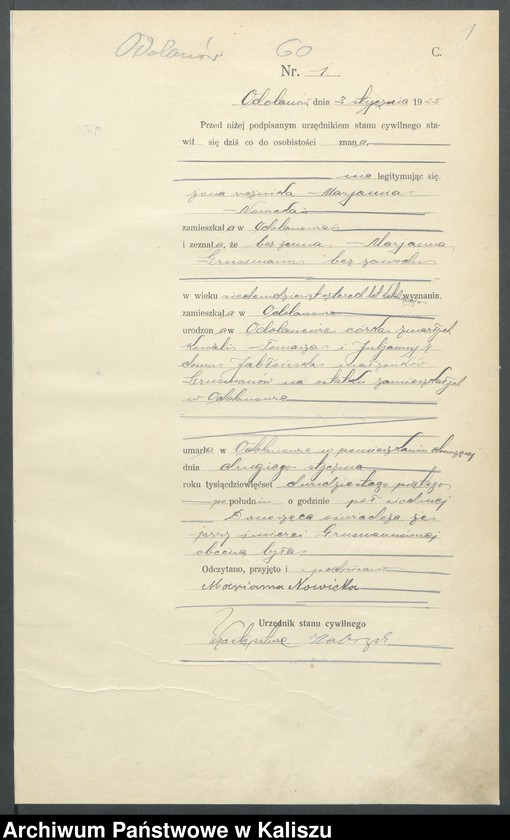 Odolanów 60 1
C.
Nr. 1
Odolanów dnia 3 stycznia 1925
Przed niżej podpisanym urzędnikiem stanu cywilnego sta-
wił się dziś co do osobistości znana,
nie legitymując się.
żona rzeźnika Marjanna
Nowicka
zamieszkała w Odolanowie
i zeznała, że bezżenna Marjanna
Grussmann bez zawodu
w wieku siedemdziesiąt czterech lat wyznania,
zamieszkała w Odolanowie
urodzona w Odolanowie córka zmarłych
kowala Tomasza i Juljanny z
domu Jabłońska małżonków
Grusmanów na ostatku zamieszkałych
w Odolanowie
umarła w Odolanowie w pomieszkaniu
dnia drugiego stycznia
roku tysiącdziewięćset dwudziestego piątego
po południu o godzinie pół siodmej
Donosząca oświadcza że
przy śmierci Grusmannównej
obecną była
Odczytano, przyjęto i podpisano
Marianna Nowicka
Urzędnik stanu cywilnego
W zastępstwie
Archiwum Państwowe w Kaliszu